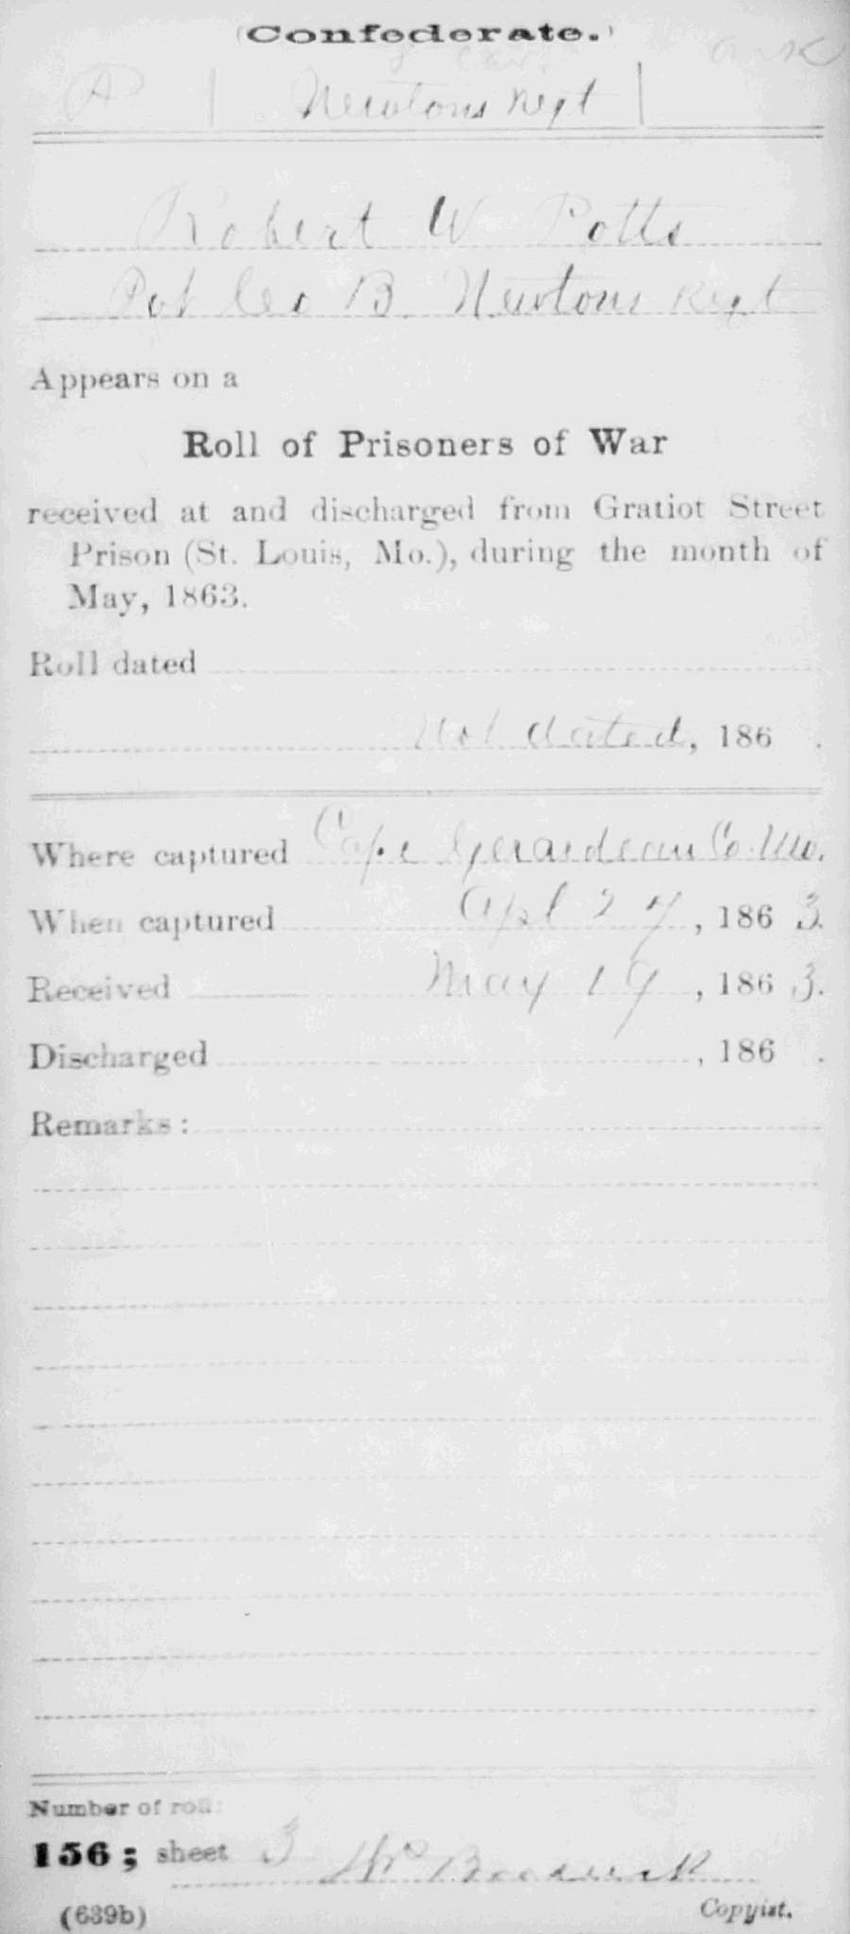 (Confederate.)
8 Cav. Ark
P | Newtons Regt |
Robert W Potts
Pvt Co B. Newtons Regt
Appears on a
Roll of Prisoners of War
received at and discharged from Gratiot Street
Prison (St. Louis, Mo.), during the month of
May, 1863.
Roll dated
Not dated, 186 .
Where captured Cape Gerardeau Co. Mo.
When captured Apl 27, 186 3.
Received May 19, 186 3.
Discharged , 186 .
Remarks:
Number of roll:
156; sheet 3
(639b) Copyist.